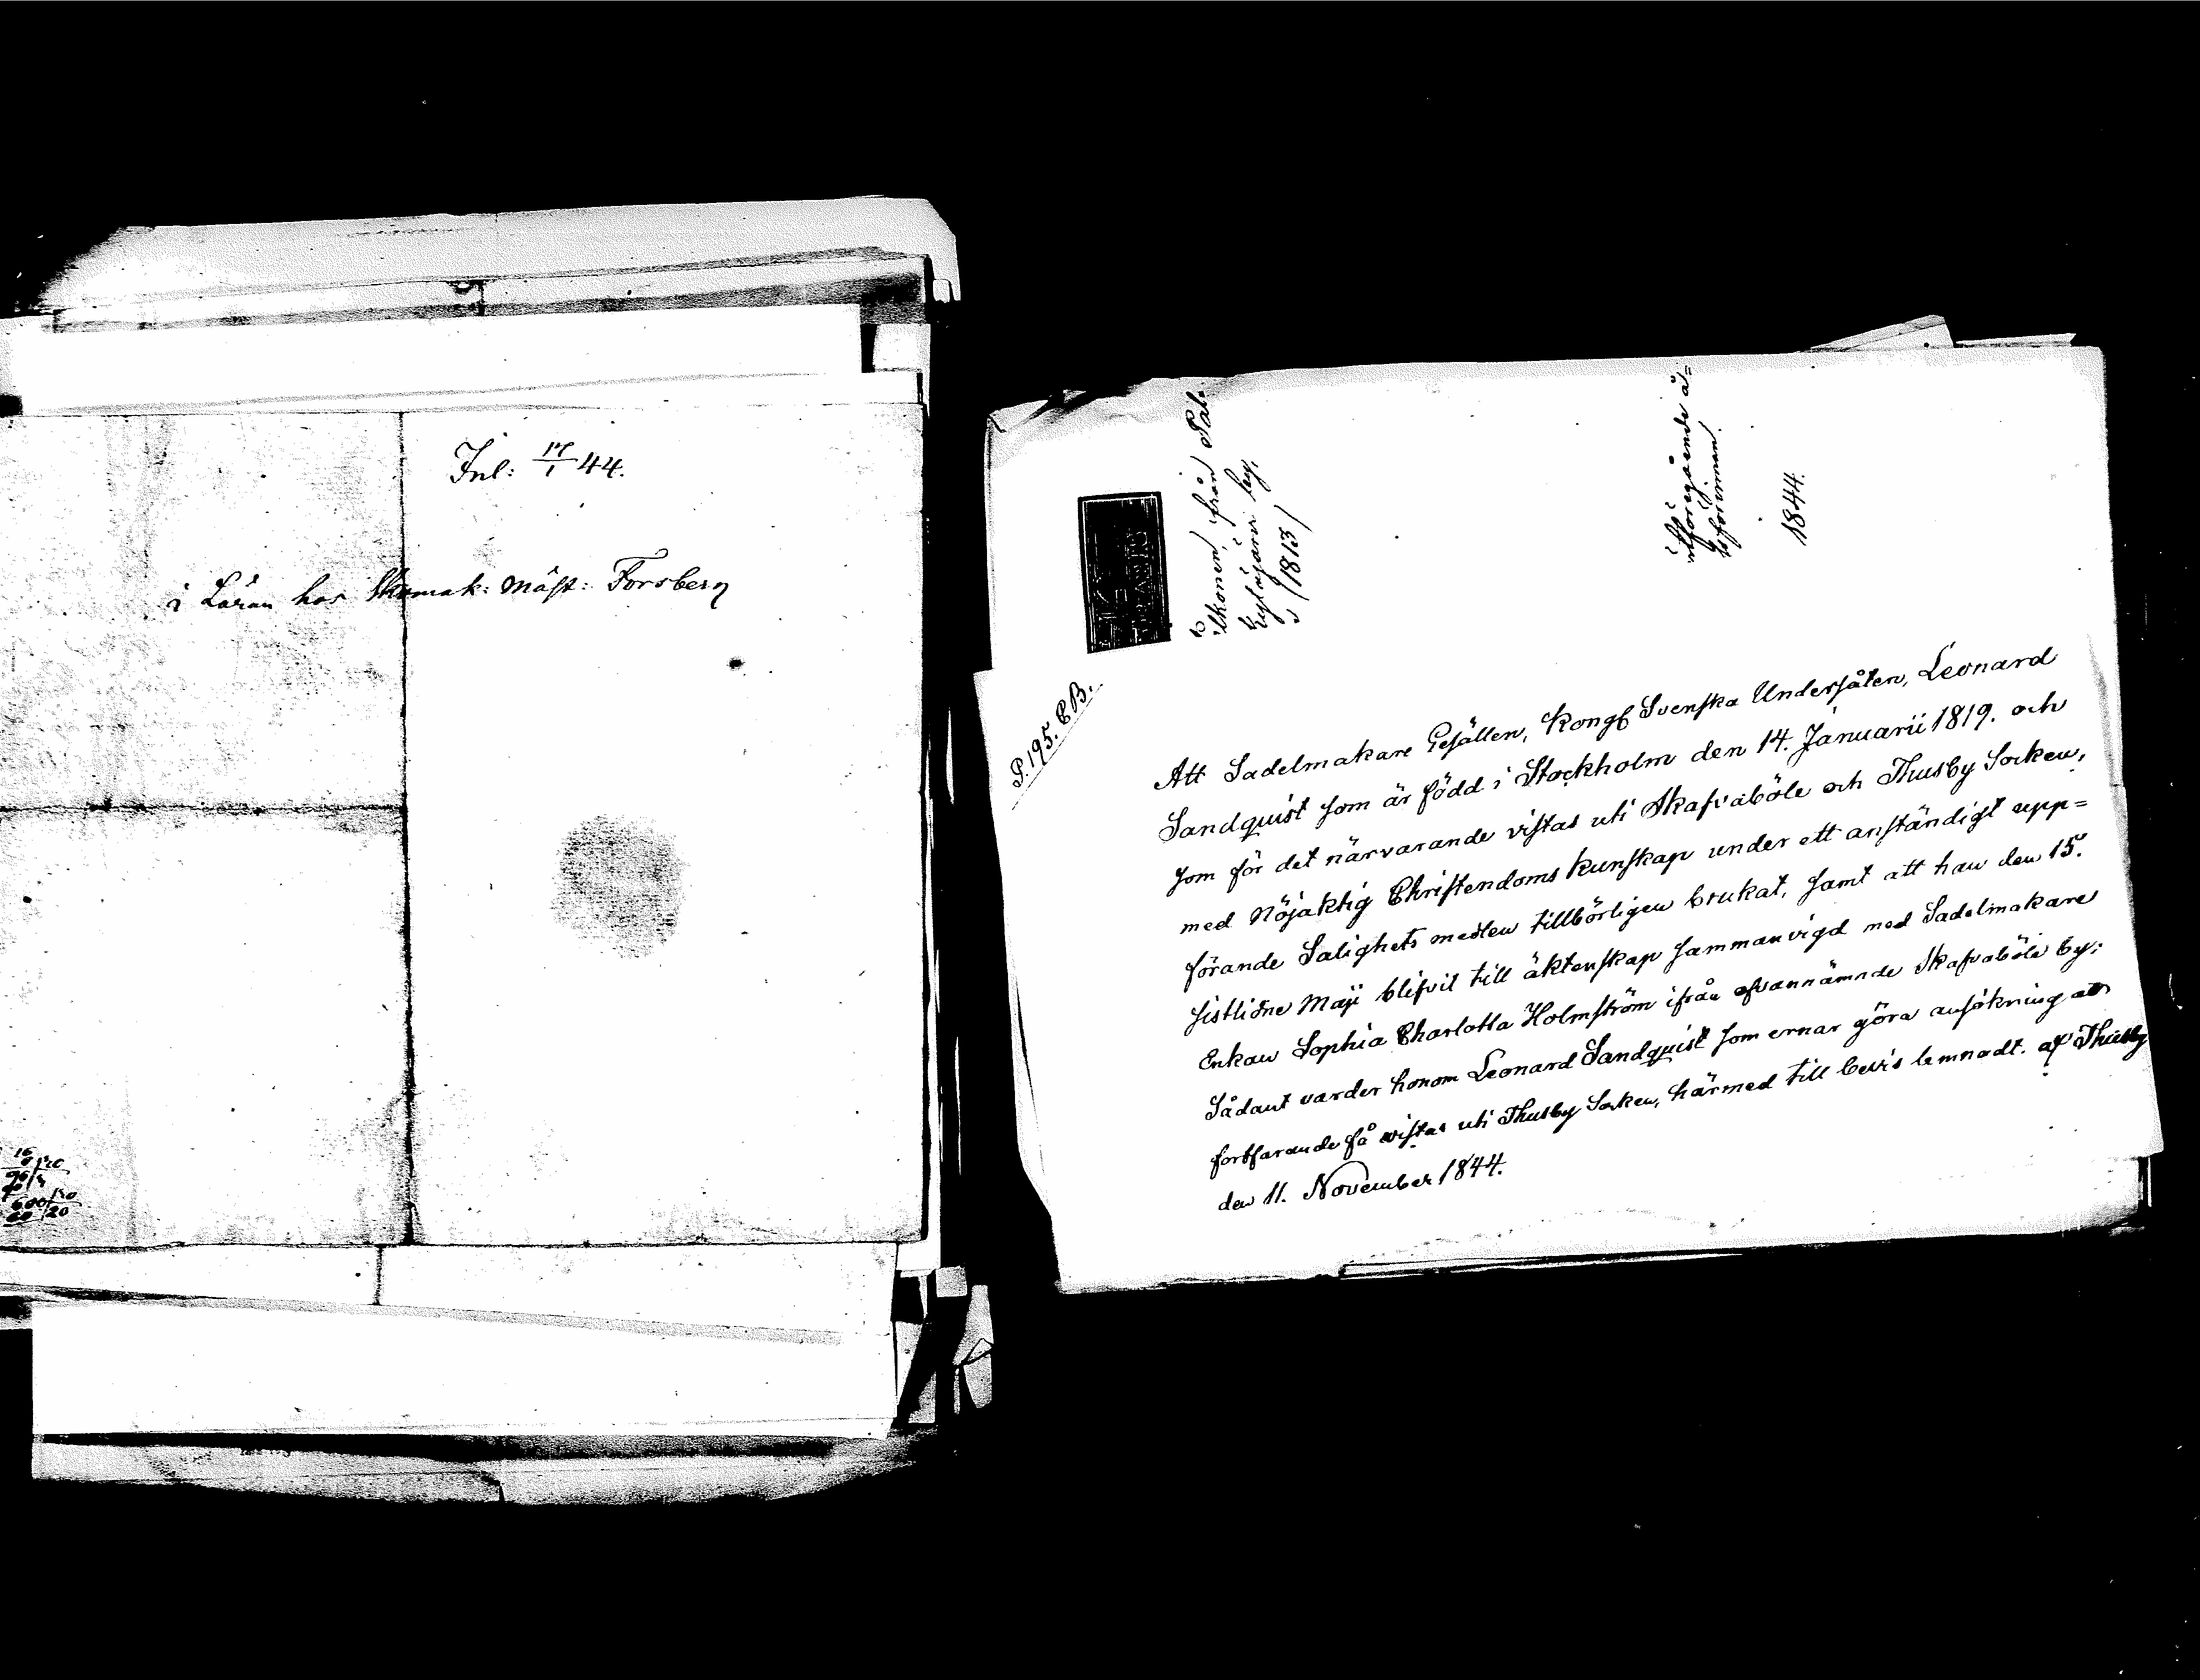 Inl: 17/1 44.
i Läran hos Skomak: Mäst: Forsberg
16
600
60 20
1844.
/1813/
P. 195. C.B.
Att Sadelmakare Gesällen, Kongl Svenska Undersåten, Leonard
Sandquist som är född i Stockholm den 14. Januarii 1819. och
som för det närvarande vistas uti Skafvaböle och Thusby Socken,
med Nöjaktig Christendoms kunskap under ett anständigt upp=
förande Salighets medlen tillbörligen brukat, samt att han den 15.
sistlidne Maji blifvit till äktenskap sammanvigd med Sadelmakare
Enkan Sophia Charlotta Holmström ifrån ofvannämnde Skafvaböle by;
Sådant varder honom Leonard Sandquist som ernar göra ansökning att
fortfarande få vistas uti Thusby Socken, härmed till bevis lemnadt. af Thusby
den 11. November 1844.